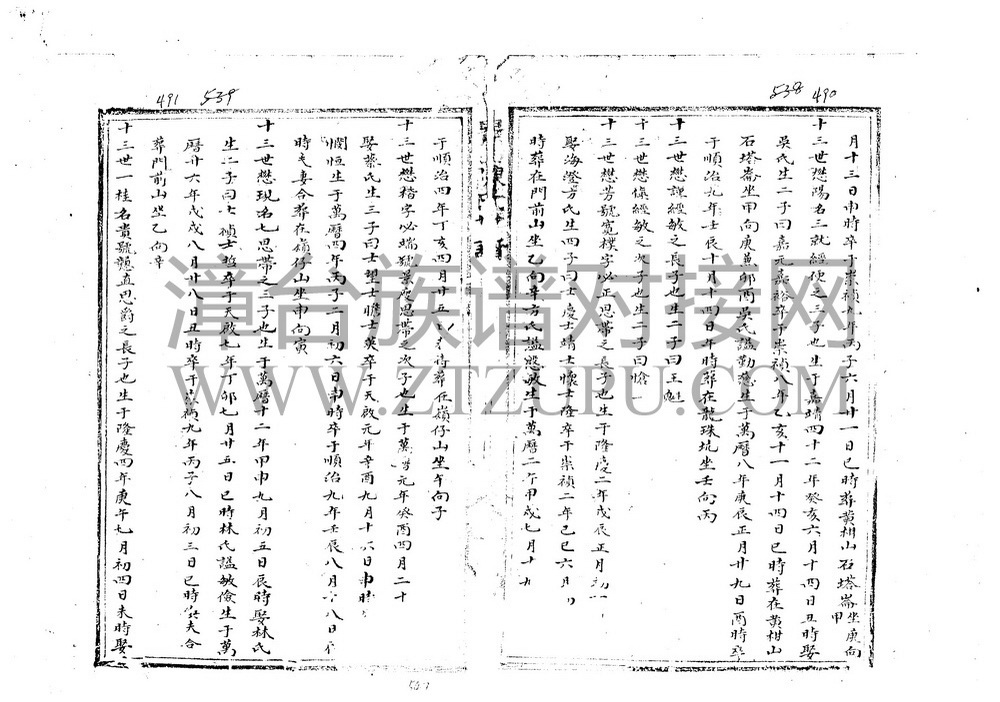 538 490
月十三日申時卒于崇禎九年丙子六月廿一日巳時葬黃柑山石塔崙坐庚向甲
十三世懋陽名三就經使之三子也生于嘉靖四十二年癸亥六月十四日丑時娶
吳氏生二子曰嘉元嘉裕卒于崇禎八年乙亥十一月十四日巳時葬在黃柑山
石塔崙坐甲向庚兼卯酉吳氏謚勤慈生于萬曆八年庚辰正月廿九日酉時卒
于順治九年壬辰十月十四日午時葬在龍珠坑坐壬向丙
十三世懋謹經敏之長子也生二子曰王魁
十三世懋慎經敏之次子也生二子曰愴一
十三世懋芳號寬樸字必正思帶之長子也生于隆慶二年戊辰正月初一
娶海澄方氏生四子曰士慶士靖士懷士隆卒于崇禎二年己巳六月
時葬在門前山坐乙向辛方氏謚慇敏生于萬曆二年甲戌七月十九
于順治四年丁亥四月廿五日 時葬在嶺仔山坐午向子
十三世懋楷字必端號景 思帶之次子也生于萬曆元年癸酉四月二十
娶蔡氏生三子曰士望士瞻士英卒于天啟元年辛酉九月十六日申時
恒生于萬曆四年丙子二月初六日申時卒于順治九年壬辰八月十八日
時夫妻合葬在嶺仔山坐申向寅
十三世懋現名七思帶之三子也生于萬曆十二年甲申九月初五日辰時娶林氏
生二子曰士禎士哲卒于天啟七年丁卯七月廿五日巳時林氏謚敏儉生于萬
曆廿六年戊戌八月廿八日丑時卒于崇禎九年丙子八月初三日巳時與夫合
葬門前山坐乙向辛
十三世一桂名貴號 直思爵之長子也生于隆慶四年庚午七月初四日未時娶
491 539
漳台族谱对接网
WWW.ZTZUPU.COM